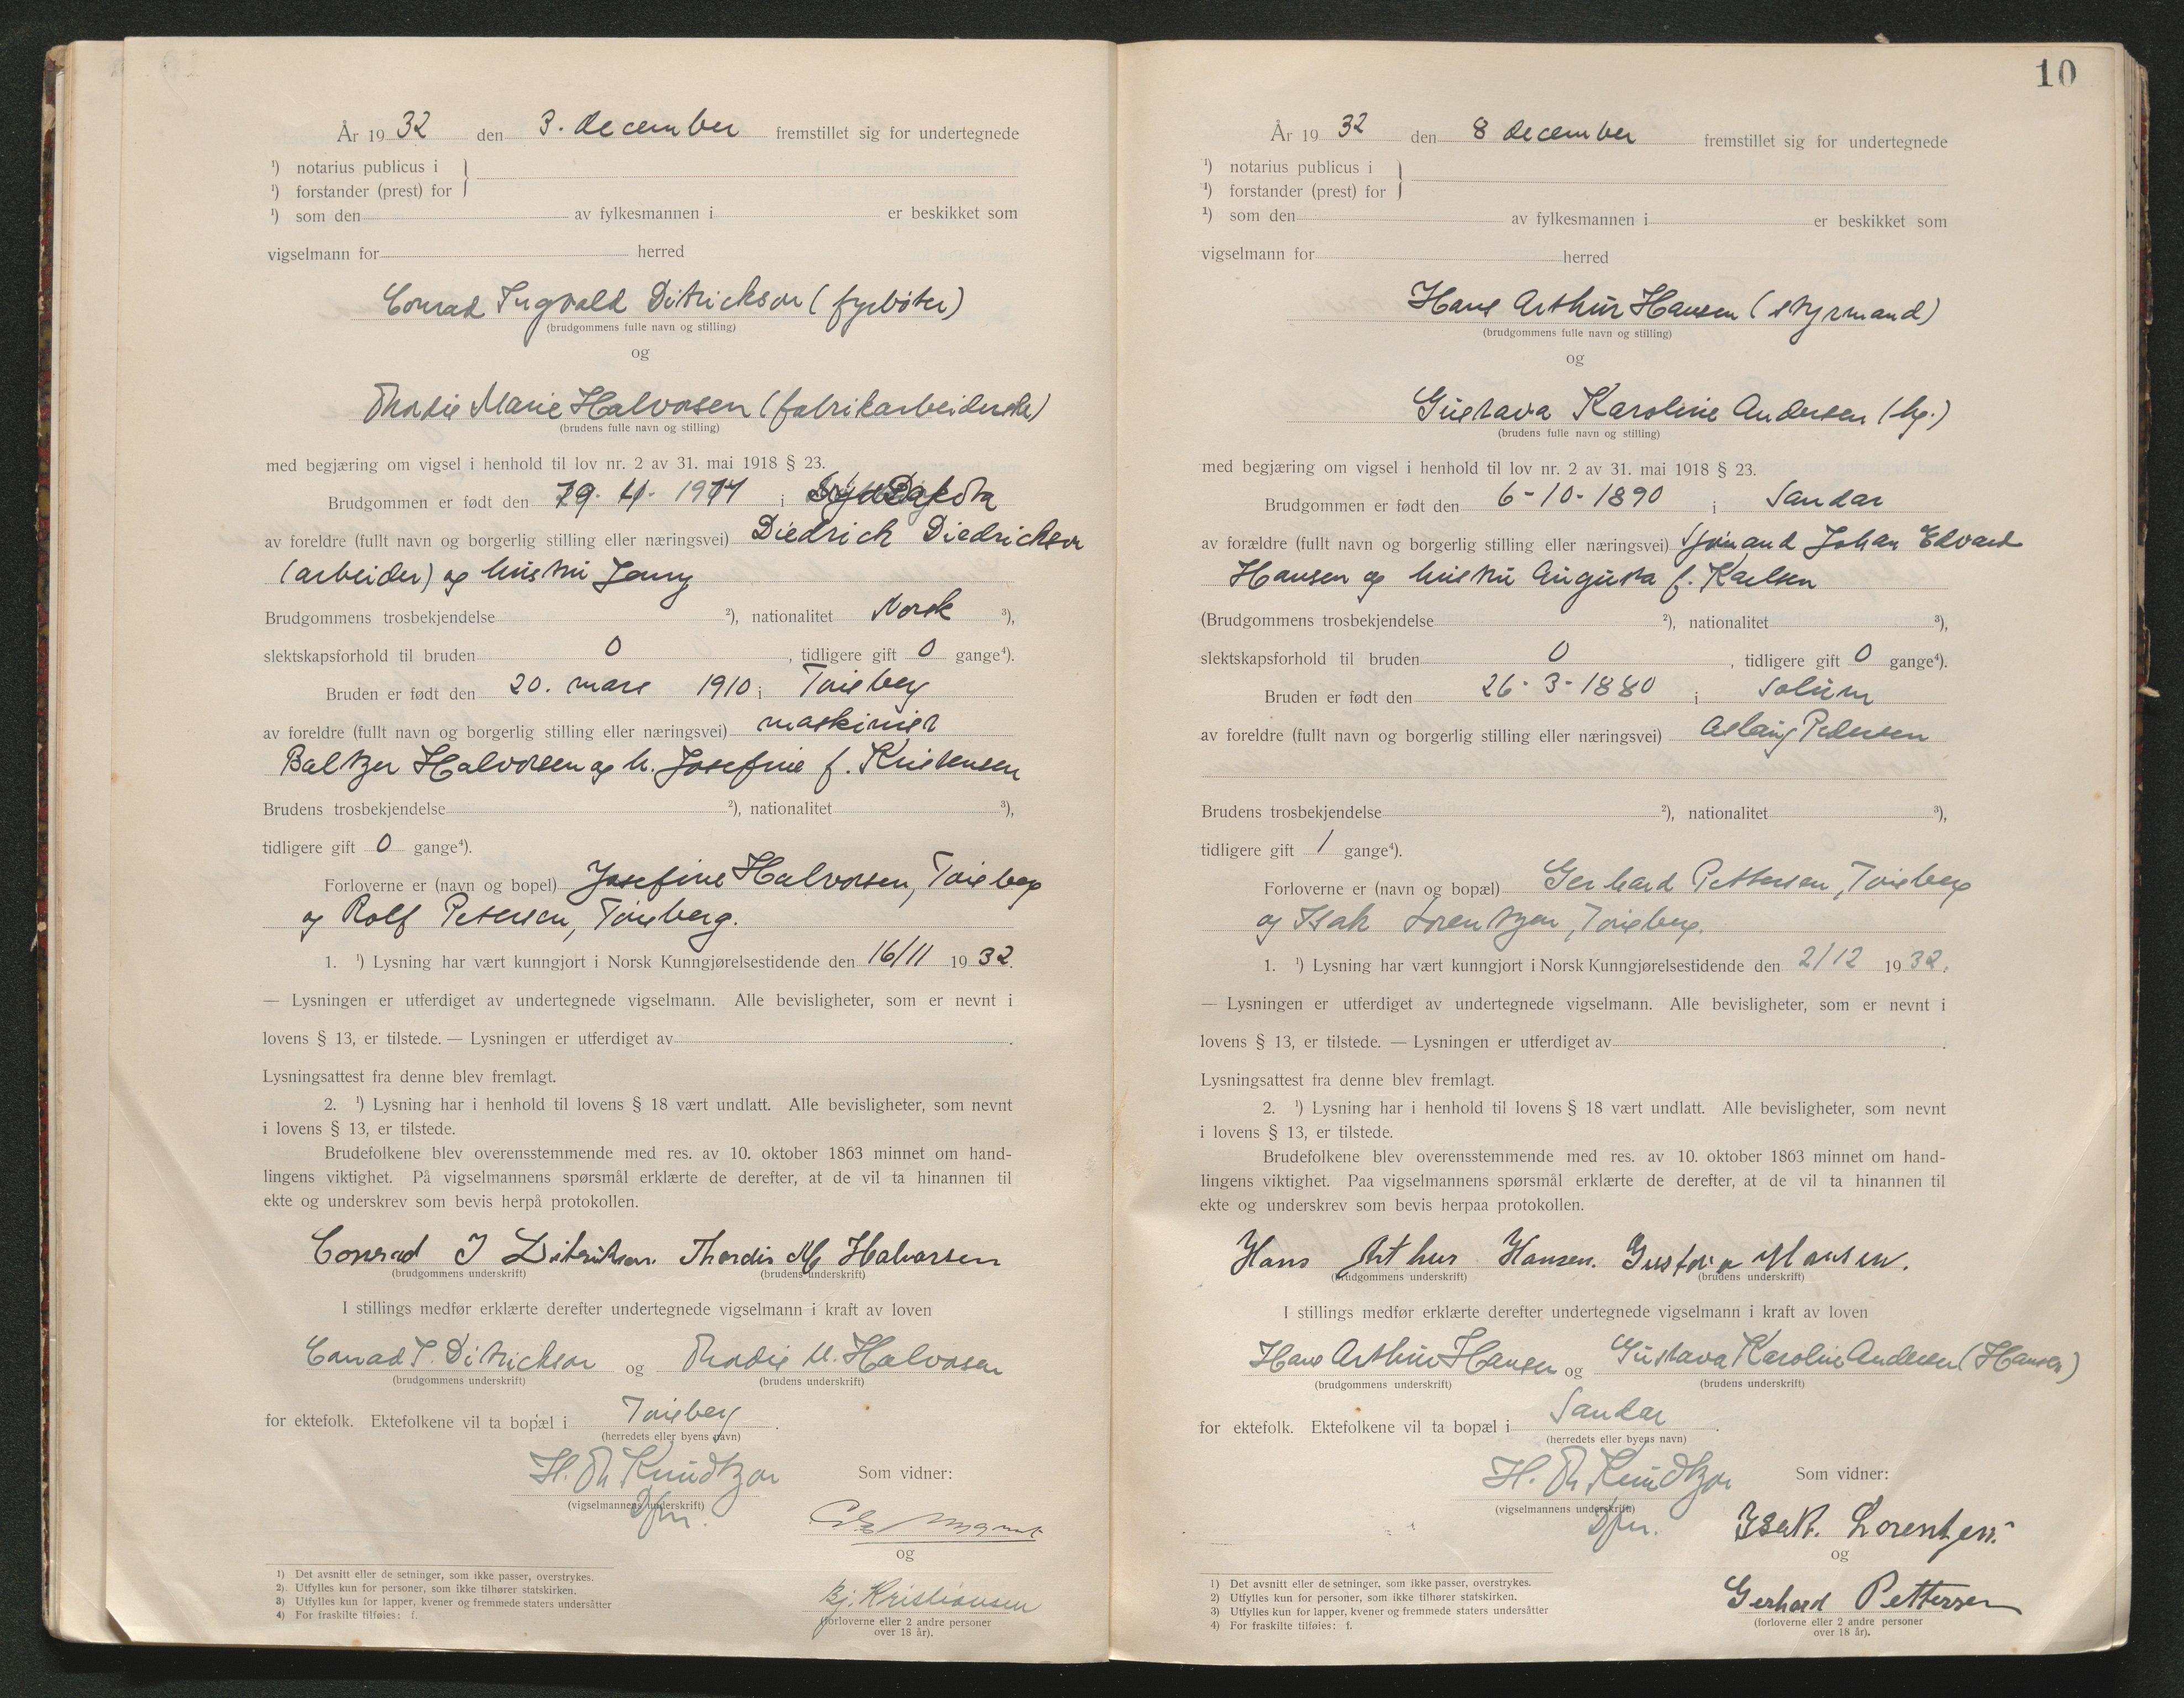 År 19 32 den 3. december fremstillet sig for undertegnede
¹) notarius publicus i
¹) forstander (prest) for
¹) som den av fylkesmannen i er beskikket som
vigselmann for herred
Conrad Ingvald Ditrickson (fyrbøter)
(brudgommens fulle navn og stilling)
og
Thordis Marie Halvorsen (fabrikarbeiderske)
(brudens fulle navn og stilling)
med begjæring om vigsel i henhold til lov nr. 2 av 31. mai 1918 § 23.
Brudgommen er født den i
av foreldre (fullt navn og borgerlig stilling eller næringsvei) Diedrich Diedrichsen
(arbeider) og hustru Jenny
Brudgommens trosbekjendelse ²), nationalitet Norsk ³),
slektskapsforhold til bruden 0, tidligere gift 0 gange⁴).
Bruden er født den 20. mars 1910 i Tønsberg
av foreldre (fullt navn og borgerlig stilling eller næringsvei) maskinist
Baltzer Halvorsen og h. Josefine f. Kristensen
Brudens trosbekjendelse ²), nationalitet ³),
tidligere gift 0 gange⁴).
Forloverne er (navn og bopel) Josefine Halvorsen, Tønsberg
og Rolf Petersen, Tønsberg.
1. ¹) Lysning har vært kunngjort i Norsk Kunngjørelsestidende den 16/11 19 32.
— Lysningen er utferdiget av undertegnede vigselmann. Alle bevisligheter, som er nevnt i
lovens § 13, er tilstede. — Lysningen er utferdiget av .
Lysningsattest fra denne blev fremlagt.
2. ¹) Lysning har i henhold til lovens § 18 vært undlatt. Alle bevisligheter, som nevnt
i lovens § 13, er tilstede.
Brudefolkene blev overensstemmende med res. av 10. oktober 1863 minnet om hand-
lingens viktighet. På vigselmannens spørsmål erklærte de derefter, at de vil ta hinannen til
ekte og underskrev som bevis herpå protokollen.
Conrad I Ditrikson. Thordis M Halvorsen
(brudgommens underskrift) (brudens underskrift)
I stillings medfør erklærte derefter undertegnede vigselmann i kraft av loven
Conrad I. Ditrickson og Thordis M. Halvorsen
(brudgommens underskrift) (brudens underskrift)
for ektefolk. Ektefolkene vil ta bopæl i Tønsberg .
(herredets eller byens navn)
H. Th Knudtzon Som vidner:
(vigselmannens underskrift)
Dfm.
og
Kristiansen
(forloverne eller 2 andre personer
over 18 år).
1) Det avsnitt eller de setninger, som ikke passer, overstrykes.
2) Utfylles kun for personer, som ikke tilhører statskirken.
3) Utfylles kun for lapper, kvener og fremmede staters undersåtter
4) For fraskilte tilføies: f.
10
År 19 32 den 8 december fremstillet sig for undertegnede
¹) notarius publicus i
¹) forstander (prest) for
¹) som den av fylkesmannen i er beskikket som
vigselmann for herred
Hans Arthur Hansen (styrmand)
(brudgommens fulle navn og stilling)
og
Gustava Karoline Andersen (hg.)
(brudens fulle navn og stilling)
med begjæring om vigsel i henhold til lov nr. 2 av 31. mai 1918 § 23.
Brudgommen er født den 6-10-1890 i Sandar
av forældre (fullt navn og borgerlig stilling eller næringsvei) Sjømand Johan Edvard
Hansen og hustru Augusta f. Karlsen
(Brudgommens trosbekjendelse ²), nationalitet ³),
slektskapsforhold til bruden 0, tidligere gift 0 gange⁴).
Bruden er født den 26-3-1880 i Solum
av foreldre (fullt navn og borgerlig stilling eller næringsvei) Aslaug Pedersen
Brudens trosbekjendelse ²), nationalitet ³),
tidligere gift 1 gange⁴).
Forloverne er (navn og bopæl) Gerhard Pettersen, Tønsberg
og Isak Lorentzen, Tønsberg.
1. ¹) Lysning har vært kunngjort i Norsk Kunngjørelsestidende den 2/12 19 32.
— Lysningen er utferdiget av undertegnede vigselmann. Alle bevisligheter, som er nevnt i
lovens § 13, er tilstede. — Lysningen er utferdiget av .
Lysningsattest fra denne blev fremlagt.
2. ¹) Lysning har i henhold til lovens § 18 vært undlatt. Alle bevisligheter, som nevnt
i lovens § 13, er tilstede.
Brudefolkene blev overensstemmende med res. av 10. oktober 1863 minnet om hand-
lingens viktighet. Paa vigselmannens spørsmål erklærte de derefter, at de vil ta hinannen til
ekte og underskrev som bevis herpaa protokollen.
Hans Arthur Hansen. Gustava Hansen.
(brudgommens underskrift) (brudens underskrift)
I stillings medfør erklærte derefter undertegnede vigselmann i kraft av loven
Hans Arthur Hansen og Gustava Karoline Andersen (Hansen)
(brudgommens underskrift) (brudens underskrift)
for ektefolk. Ektefolkene vil ta bopæl i Sandar .
(herredets eller byens navn)
H. Th Knudtzon Som vidner:
(vigselmannens underskrift)
Dfm. Isak. Lorentzen.
og
Gerhard Pettersen
(forloverne eller 2 andre personer
over 18 år).
1) Det avsnitt eller de setninger, som ikke passer, overstrykes.
2) Utfylles kun for personer, som ikke tilhører statskirken.
3) Utfylles kun for lapper, kvener og fremmede staters undersåtter
4) For fraskilte tilføies: f.